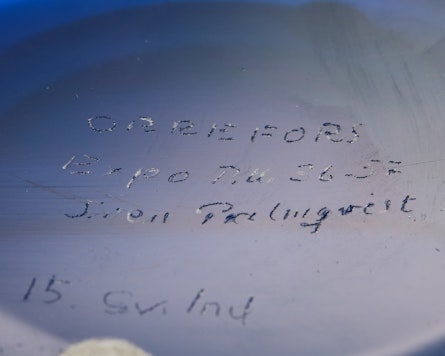 ORREFORS
Expo Nu 36-57
Sven Palmqvist
15. Sv. Ind